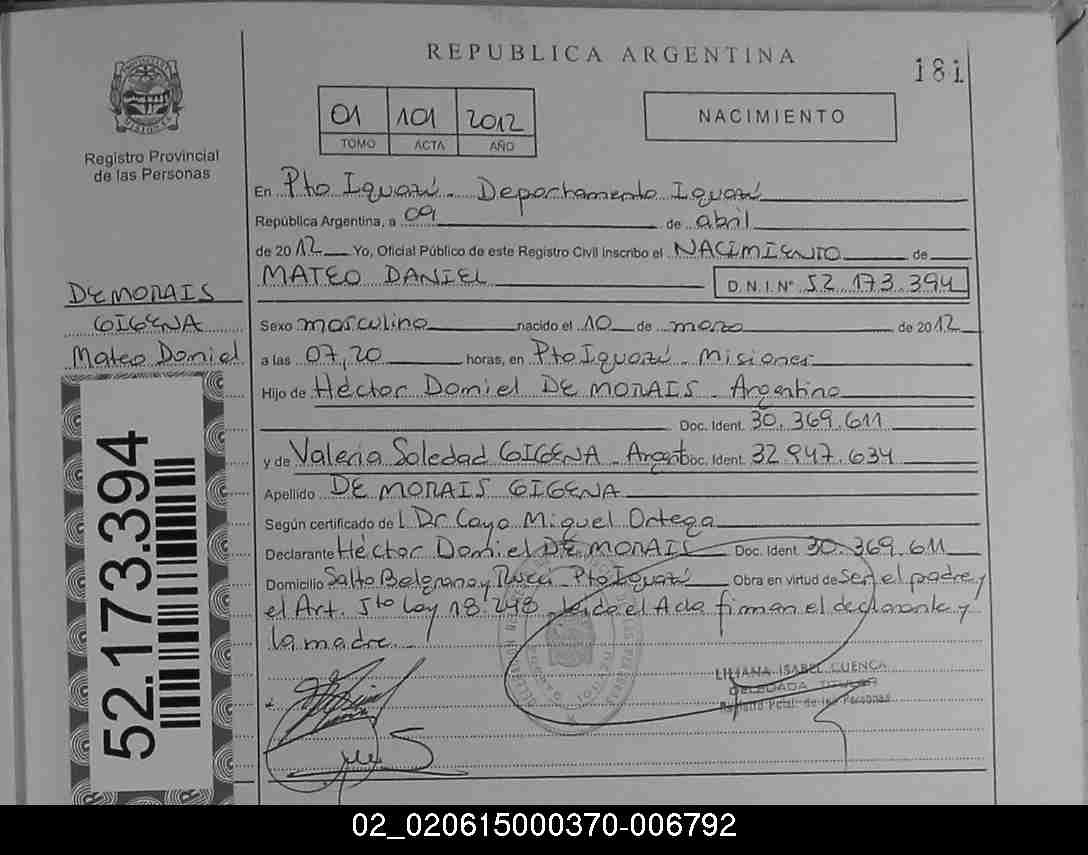 REPUBLICA ARGENTINA
181
01 101 2012
TOMO ACTA AÑO
NACIMIENTO
Registro Provincial
de las Personas
En Pto Iguazú - Departamento Iguazú
República Argentina, a 09 de abril
de 2012 Yo, Oficial Público de este Registro Civil inscribo el NACIMIENTO de
MATEO DANIEL D.N.I.Nº 52.173.394
DE MORAIS
GIGENA
Mateo Daniel
Sexo masculino nacido el 10 de marzo de 2012
a las 07,20 horas, en Pto Iguazú - Misiones
Hijo de Héctor Daniel DE MORAIS - Argentino
Doc. Ident. 30.369.611
y de Valeria Soledad GIGENA - Argent Doc. Ident. 32.947.634
Apellido DE MORAIS GIGENA
Según certificado de l Dr Cayo Miguel Ortega
Declarante Héctor Daniel DE MORAIS Doc. Ident. 30.369.611
Domicilio Salto Belgrano y Rucci - Pto Iguazú Obra en virtud de Ser el padre y
el Art. 5to Ley 18.248 - Leída el Acta firman el declarante y
la madre
52.173.394
LILIANA ISABEL CUENCA
DELEGADA TITULAR
Registro Pcial. de las Personas
02_020615000370-006792